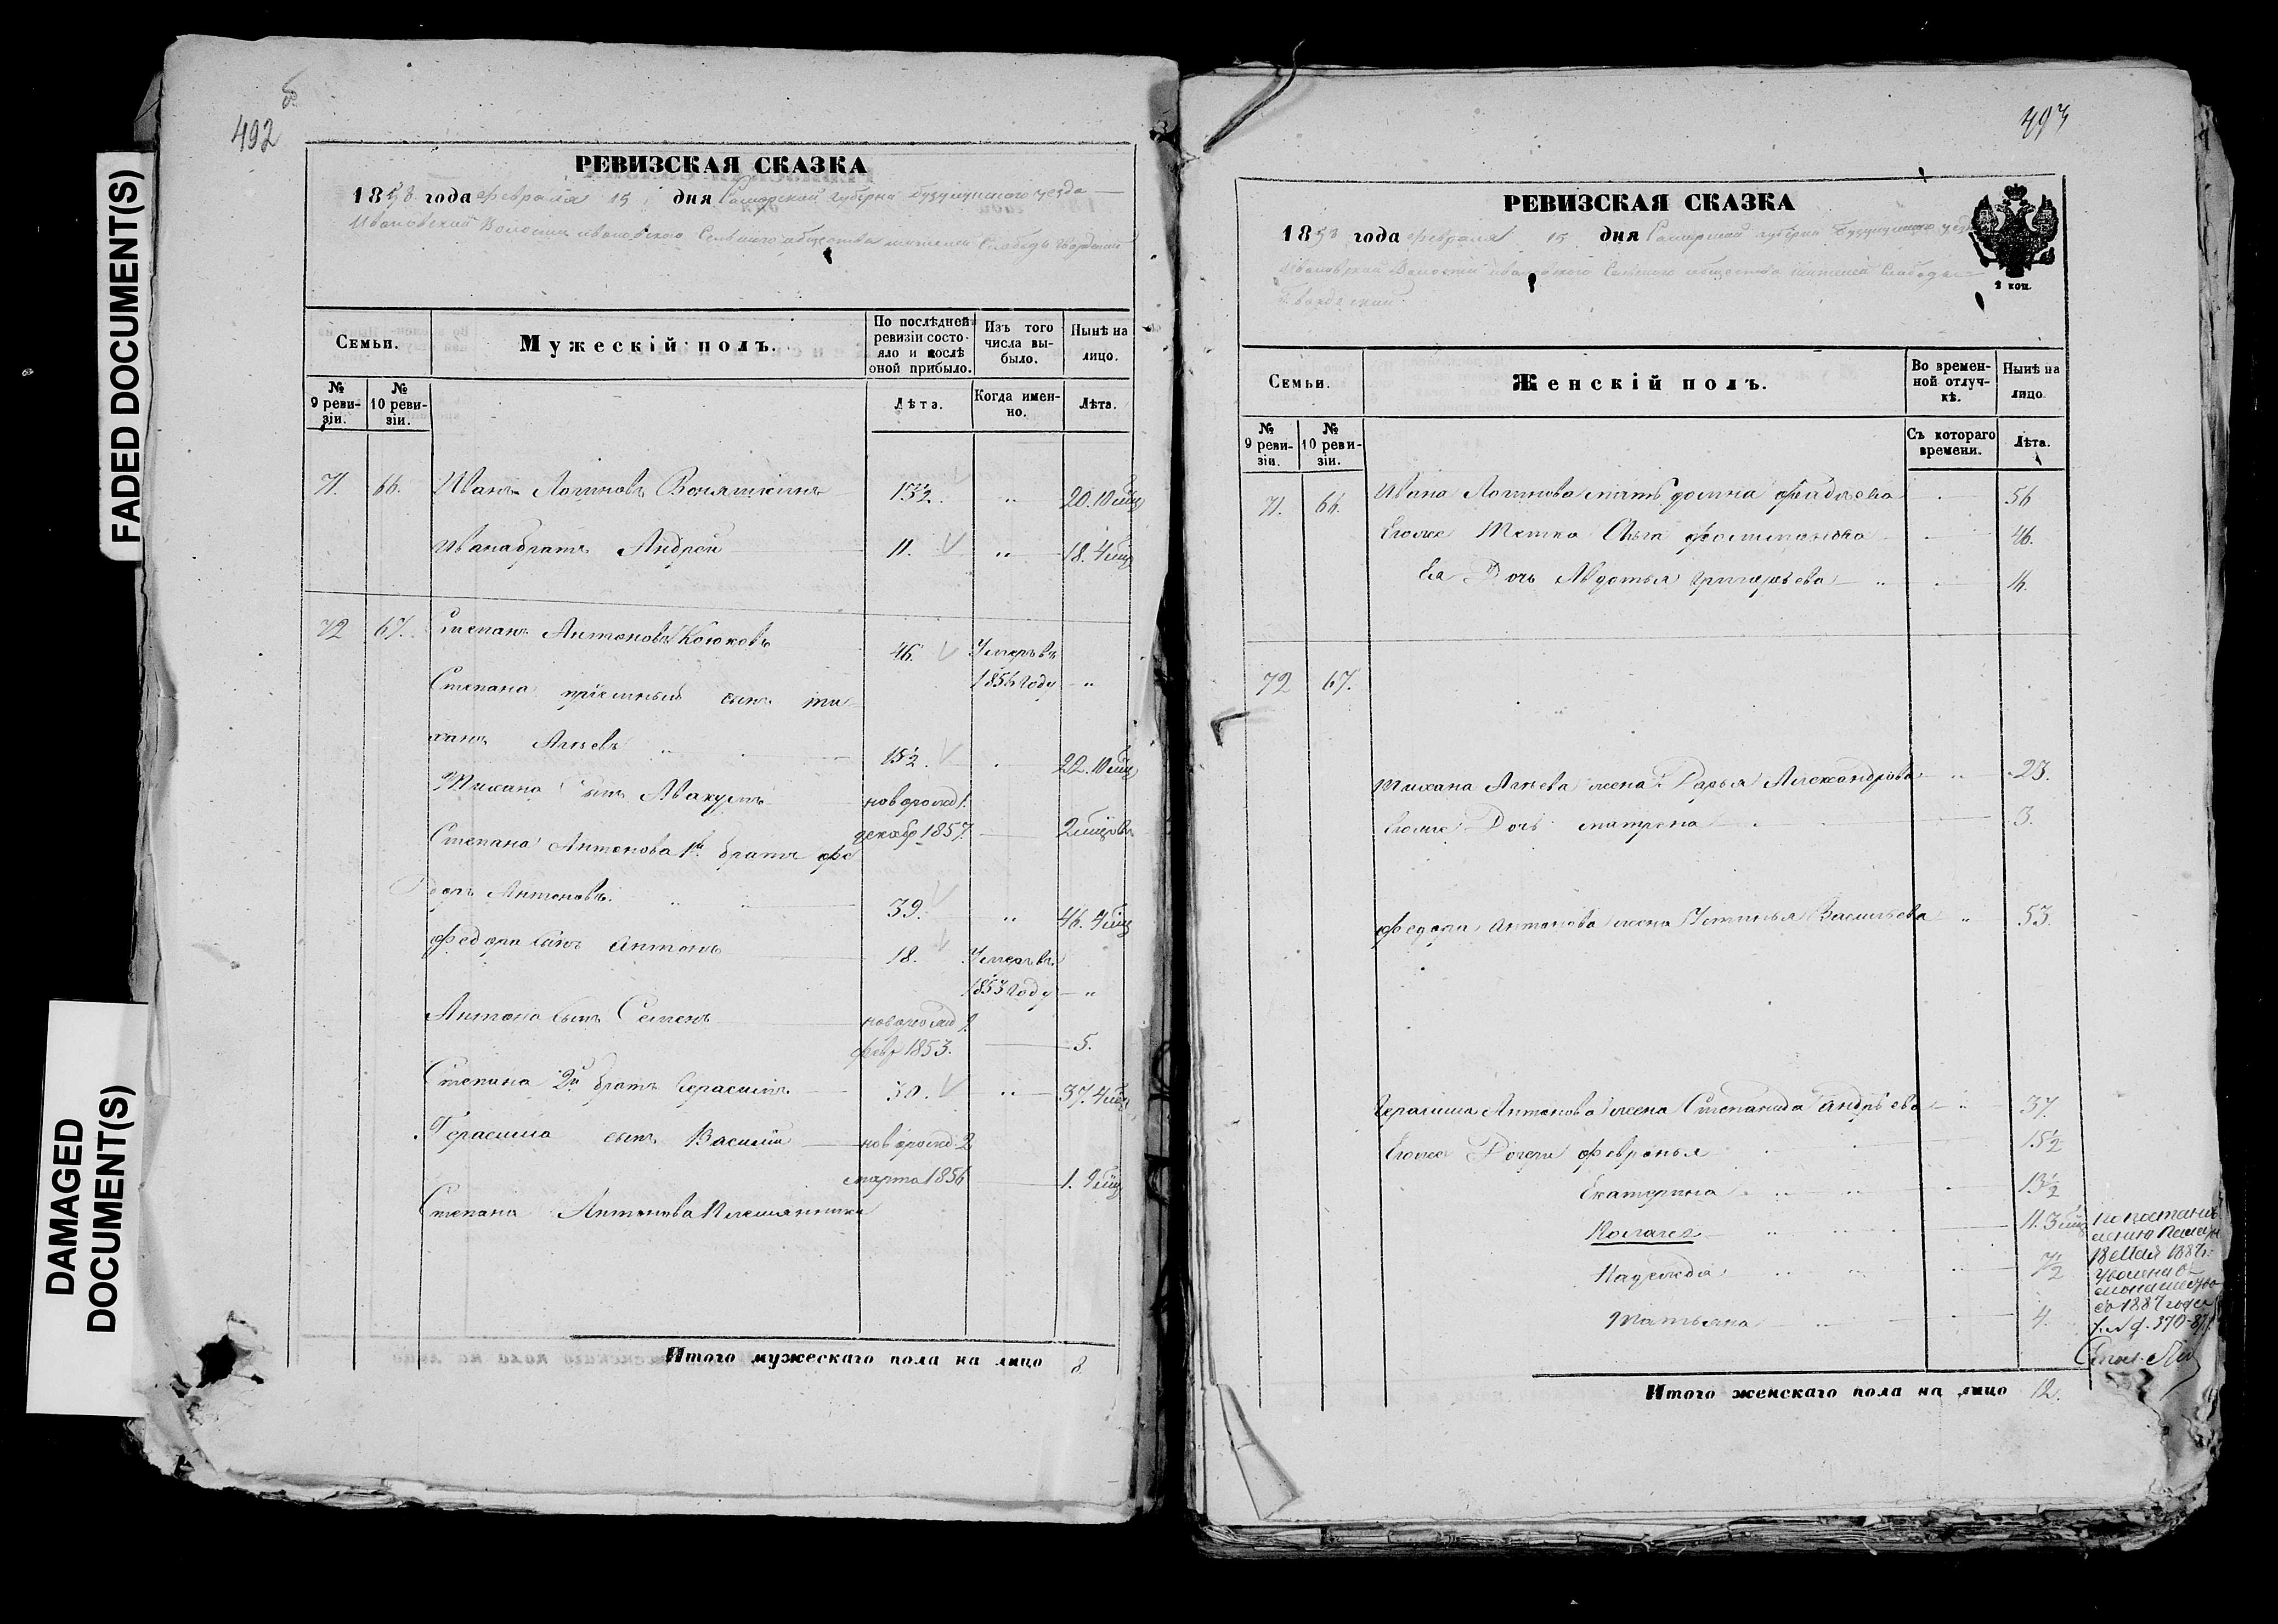 FADED DOCUMENT(S)
DAMAGED
DOCUMENT(S)
492
РЕВИЗСКАЯ СКАЗКА
1858 года февраля 15 дня Самарской губерніи Бузулукскаго уезда
Ивановской Волости ивановского Сельского общества жителей Слободы
Семьи.
Мужескій полъ.
По послѣдней ревизіи состояло и послѣ оной прибыло.
Изъ того числа выбыло.
Нынѣ на лицо.
№ 9 ревизіи.
№ 10 ревизіи.
Лѣта.
Когда именно.
Лѣта.
71. 66. Иванъ Логиновъ 13½ " 20. 10 мцъ
Ивана братъ Андрей 11. " 18. 4 мцъ
72 67. Степанъ Антоновъ Коюковъ 46. Умеръ въ
1856 году "
Степана пріемный сынъ ти
ханъ 15½. 22. 10 мцъ
Тихана сынъ Авакумъ новорожд 1.
декабр 1857. 2 мцовъ
Степана Антонова 1й братъ фе
доръ Антоновъ. 39. " 46. 4 мцъ
Федора сынъ Антонъ 18. Умеръ въ
1853 году "
Антона сынъ Семенъ новорожд
февр 1853. 5.
Степана 2й братъ Герасимъ 30. " 37. 4 мцъ
Герасима сынъ Василій новорожд 2
марта 1856 1.
Степана Антонова Племянники
Итого мужескаго пола на лицо 8.
493
РЕВИЗСКАЯ СКАЗКА
1858 года февраля 15 дня Самарской губерніи Бузулукскаго
Ивановской Волости ивановского Сельского общества жителей Слободы
2 коп.
Семьи.
Женскій полъ.
Во временной отлучкѣ.
Нынѣ на лицо
№ 9 ревизіи.
№ 10 ревизіи.
Съ котораго времени.
Лѣта.
71. 66. Ивана Логинова мать 56
Егоже Тетка 46.
Ея Дочь Авдотья Григорьева " 14.
72 67.
Тихана жена Дарья Александрова " 23.
Егоже Дочь матрена 3.
Федора Антонова жена Устинья Васильева " 53.
Герасима Антонова жена Степанида Андрѣева " 37.
Егоже Дочери февронья 15½
Екатерина 13½
11. 3 мцъ
Надежда 7½
Татьяна 4.
18 Мая 1887г.
1887 года
Итого женскаго пола на лицо 12.